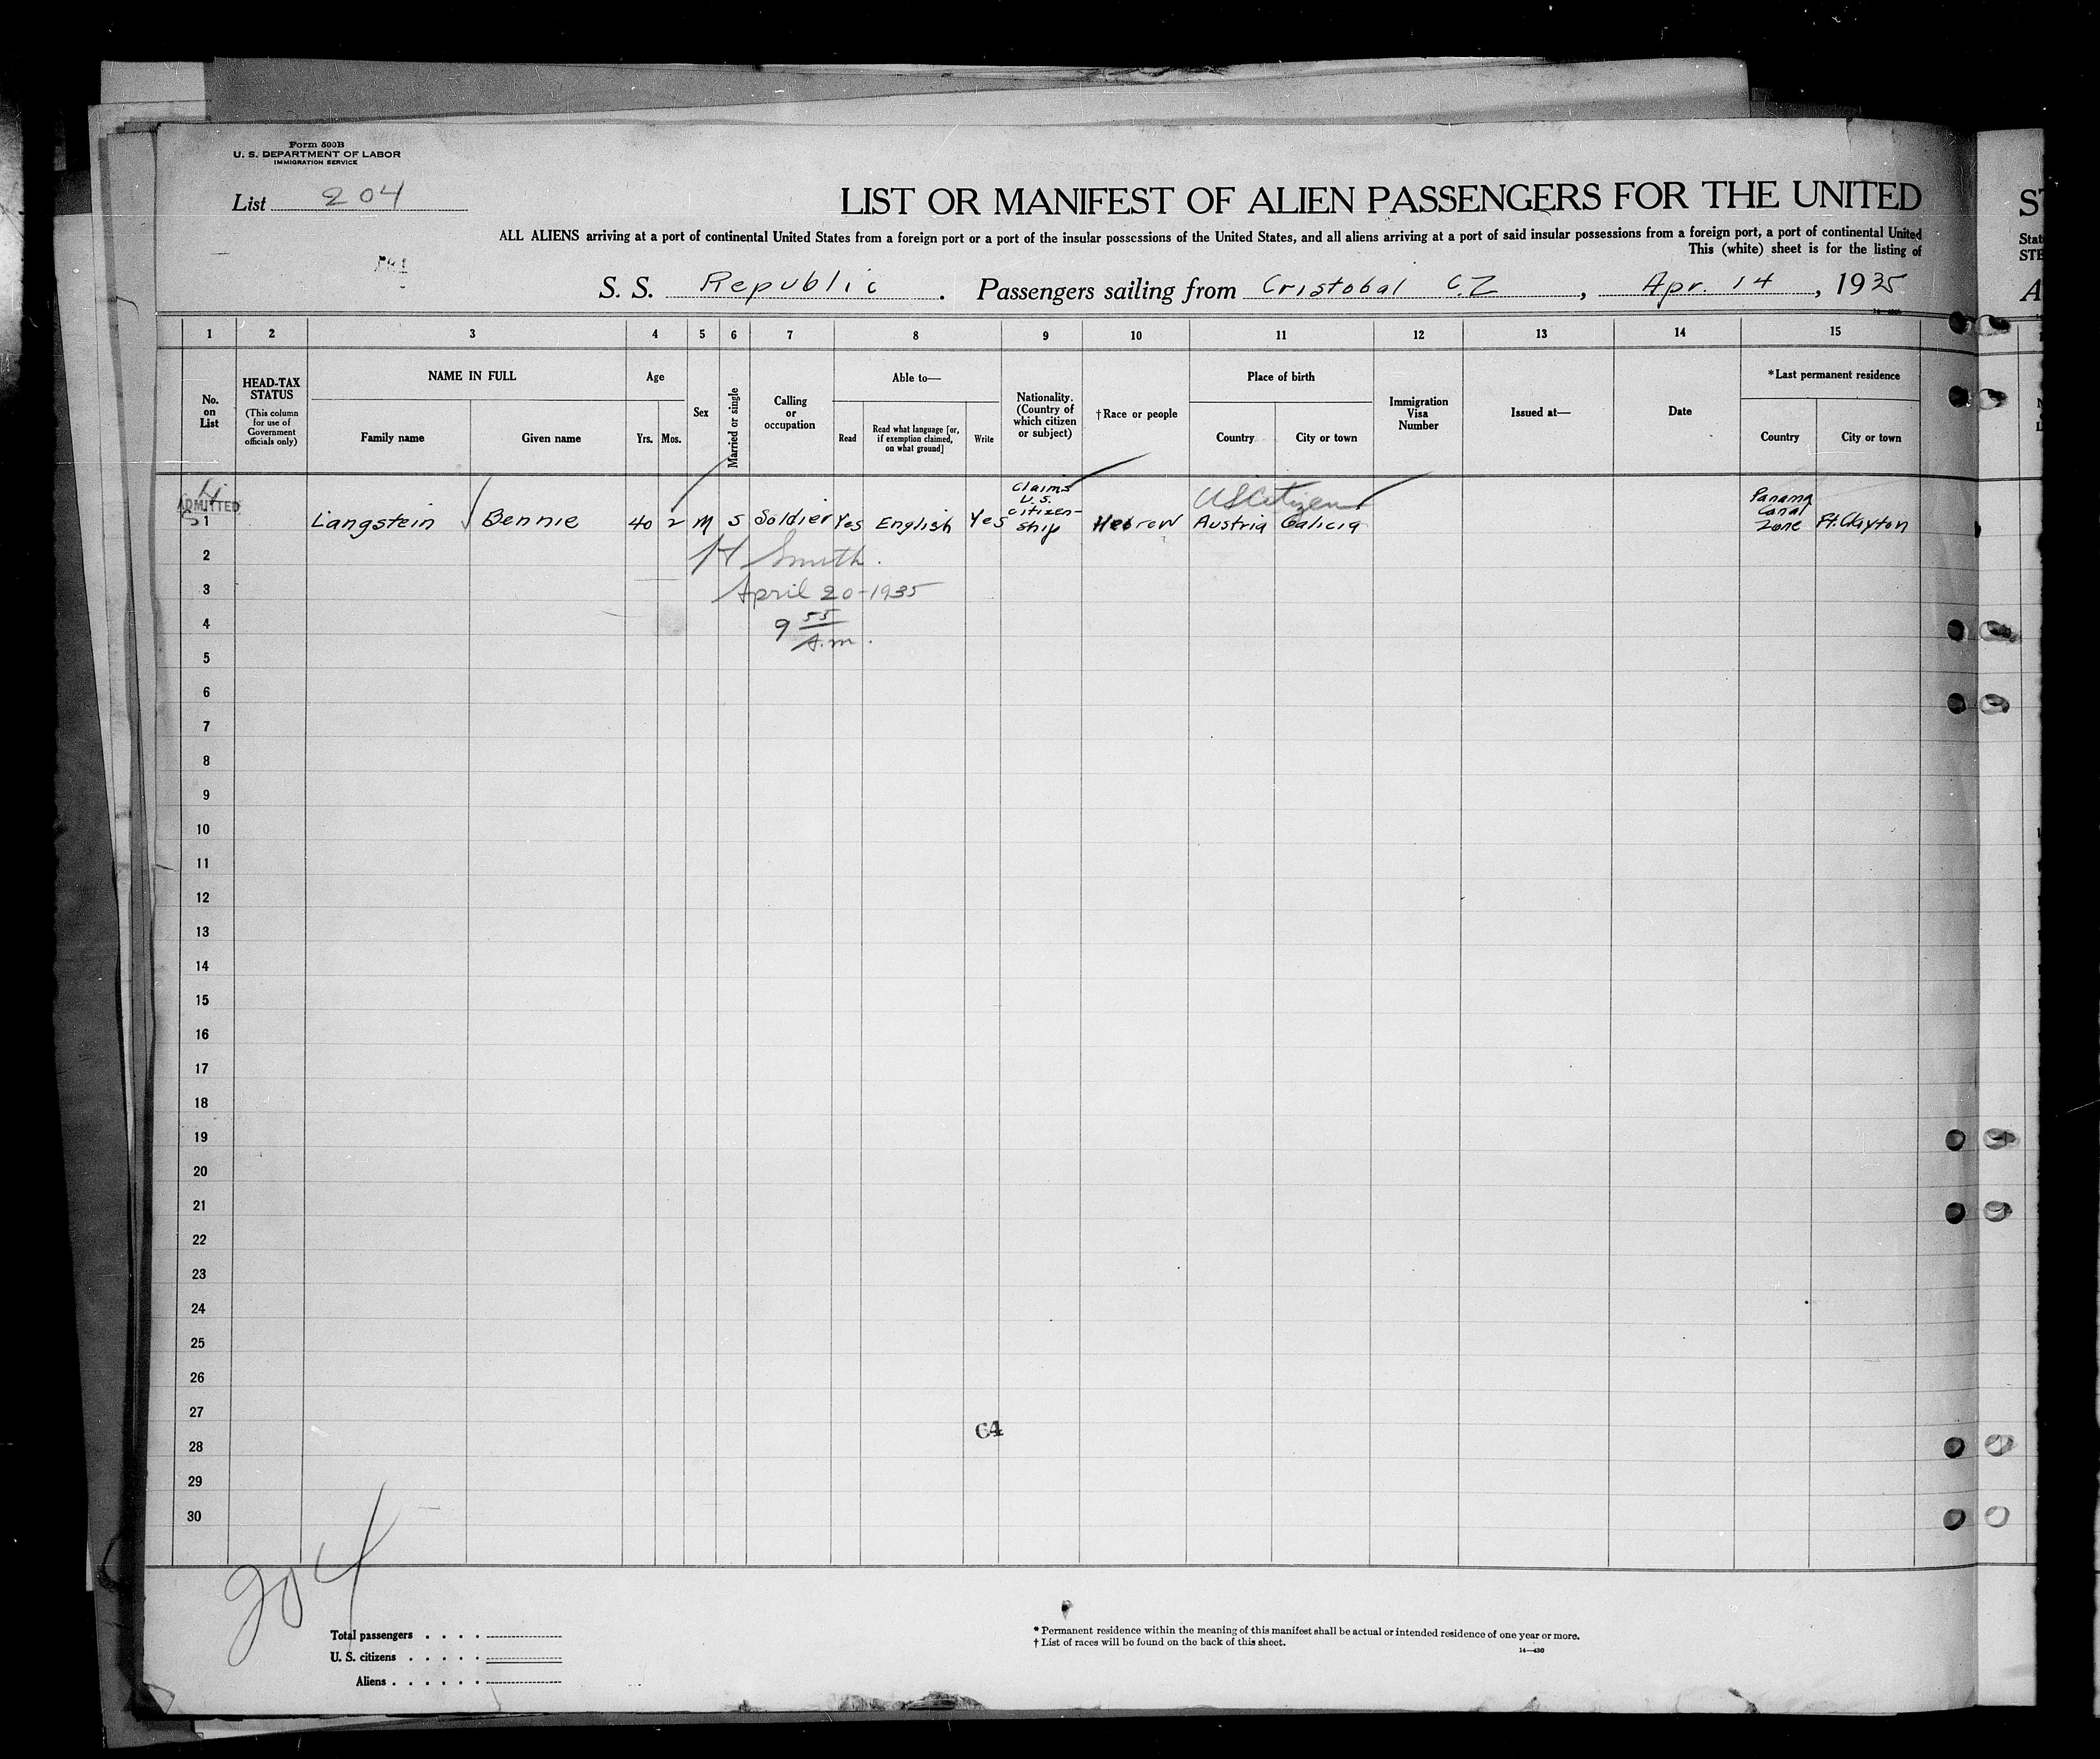 Form 500B
U. S. DEPARTMENT OF LABOR
IMMIGRATION SERVICE
List 204
LIST OR MANIFEST OF ALIEN PASSENGERS FOR THE UNITED
ST
ALL ALIENS arriving at a port of continental United States from a foreign port or a port of the insular possessions of the United States, and all aliens arriving at a port of said insular possessions from a foreign port, a port of continental United
Stat
This (white) sheet is for the listing of
STE
S. S. Republic . Passengers sailing from Cristobal C.Z , Apr. 14 , 1935
A
1 2 3 4 5 6 7 8 9 10 11 12 13 14 15
No. on List
HEAD-TAX STATUS
(This column for use of Government officials only)
NAME IN FULL
Family name
Given name
Age
Yrs. Mos.
Sex
Married or single
Calling or occupation
Able to—
Read
Read what language [or, if exemption claimed, on what ground]
Write
Nationality. (Country of which citizen or subject)
†Race or people
Place of birth
Country
City or town
Immigration Visa Number
Issued at—
Date
*Last permanent residence
Country
City or town
ADMITTED
US Citizen
1 Langstein Bennie 40 2 M S Soldier Yes English Yes Claims U.S. Citizen-ship Hebrew Austria Galicia Panama Canal Zone Ft. Clayton
2
H Smith.
3
April 20-1935
4
9 55
A.m.
5
6
7
8
9
10
11
12
13
14
15
16
17
18
19
20
21
22
23
24
25
26
27
64
28
29
30
204
Total passengers
U. S. citizens
Aliens
* Permanent residence within the meaning of this manifest shall be actual or intended residence of one year or more.
† List of races will be found on the back of this sheet.
14—430